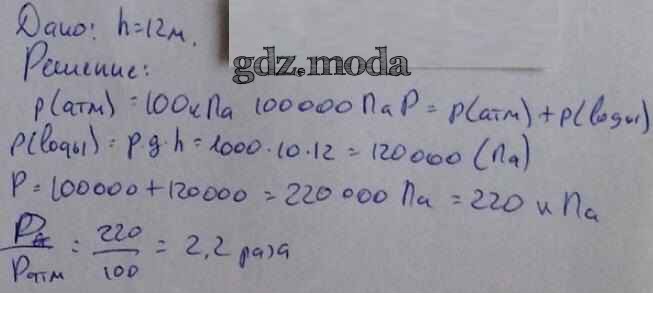 Дано: h=12м.
Решение:
gdz.moda
p(атм) = 100кПа 100000 Па P = p(атм) + p(воды)
p(воды) = p·g·h = 1000·10·12 = 120000 (Па)
P = 100000 + 120000 = 220 000 Па = 220 кПа
P/Pатм = 220/100 = 2,2 раза